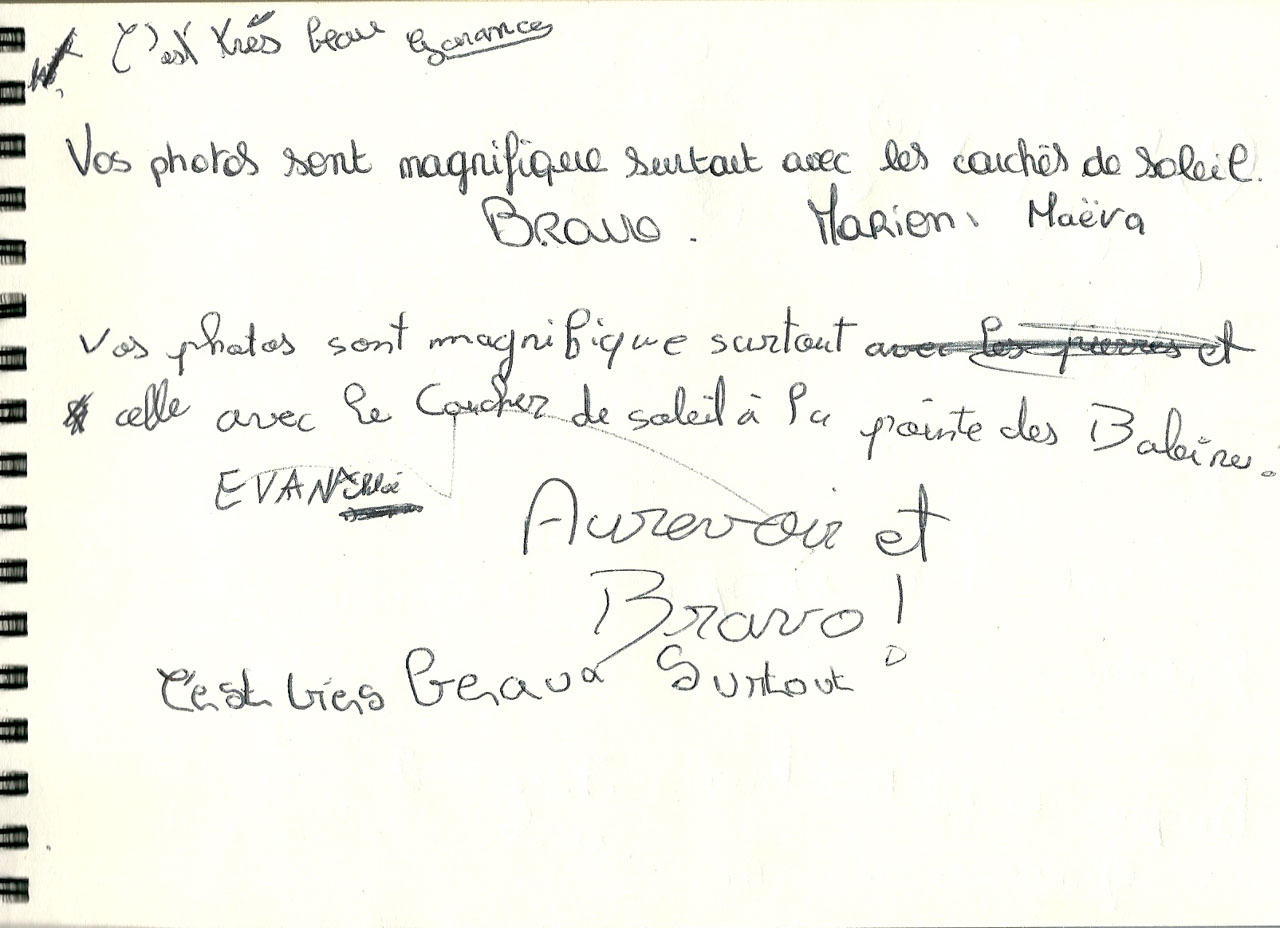 C'est très beau Garance
Vos photos sont magnifique surtout avec les couchés de soleil.
BRAVO. MARION, Maëva
Vos photos sont magnifique surtout avec les pierres et
celle avec le coucher de soleil à la pointe des Baleines.
EVAN Chloé
Aurevoir et
Bravo!
C'est trers beraux Surtout